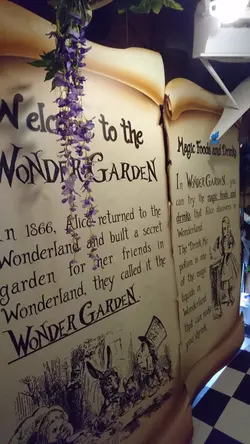 Welcome to the
WONDER GARDEN
In 1866, Alice returned to the
Wonderland and built a secret
garden for her friends in
Wonderland, they called it the
WONDER GARDEN.
Magic Foods and Drinks
In WONDER GARDEN, you
can try the magic foods and
drinks that Alice
Wonderland.
The "Drink Me"
potion is one
of the magic
liquids in
Wonderland
that can
you